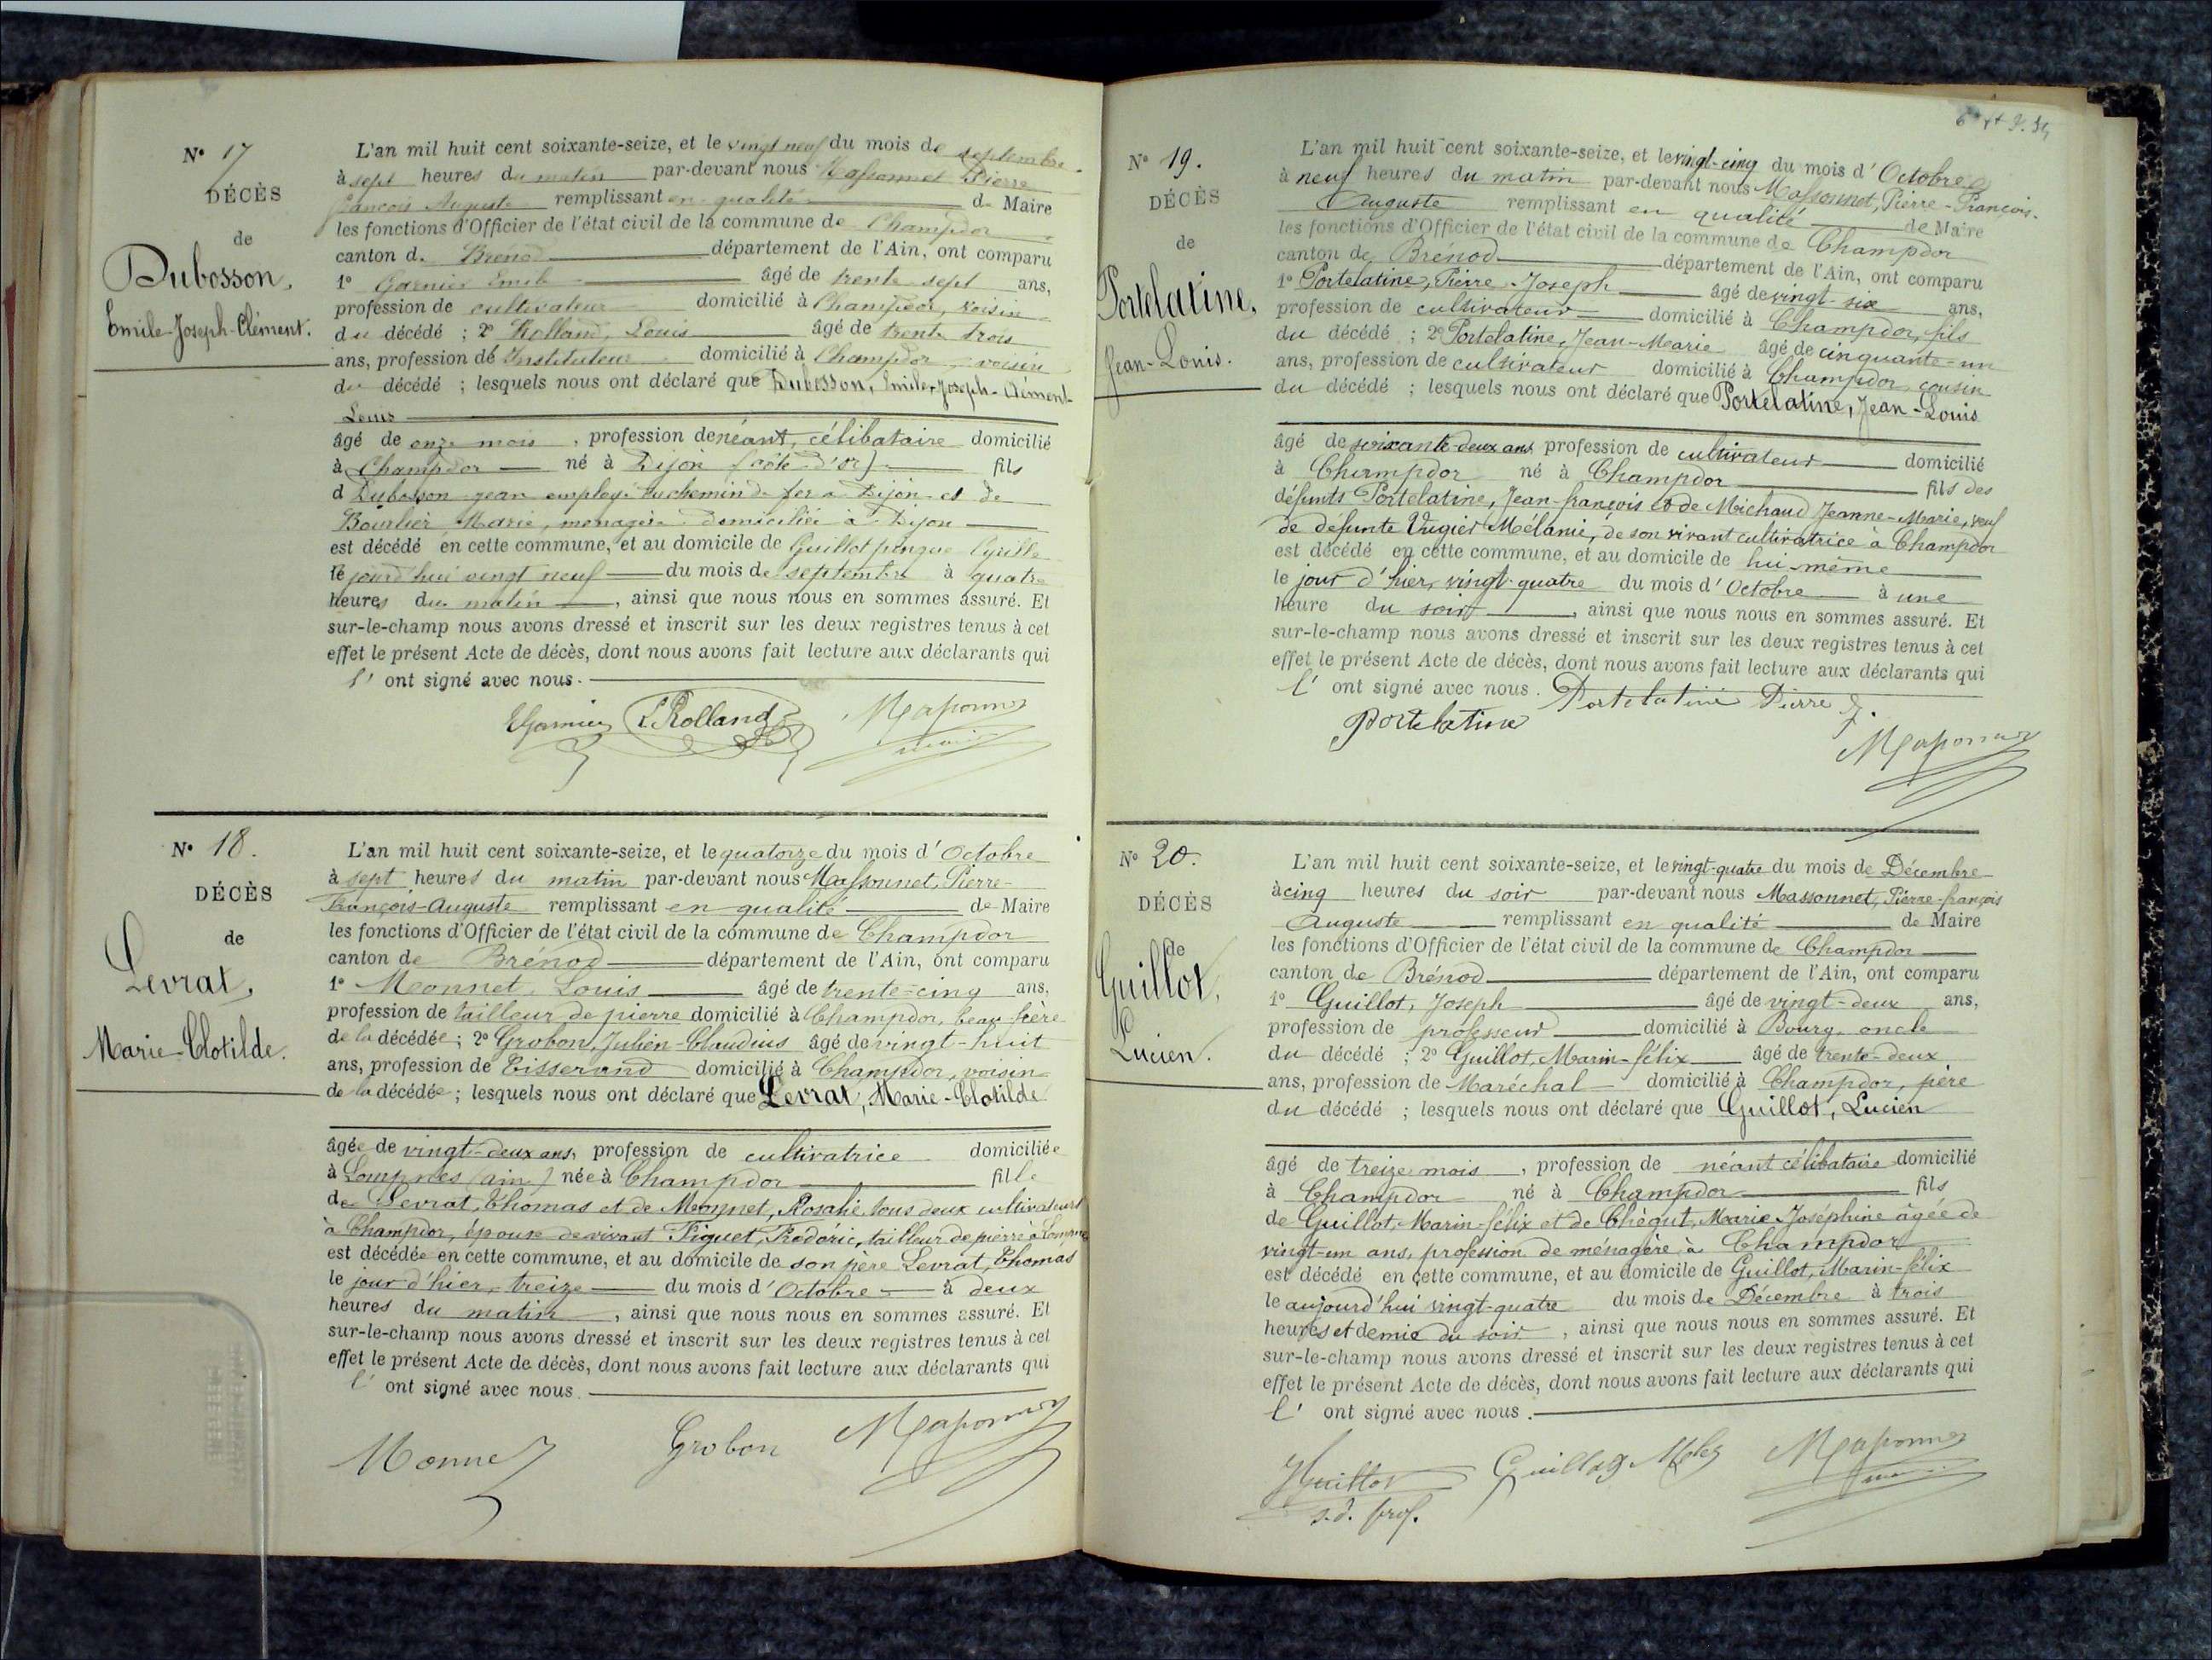 N° 17
DÉCÈS
de
Dubosson,
Emile-Joseph-Clément.
L'an mil huit cent soixante-seize, et le vingt neuf du mois de septembre
à sept heures du matin par-devant nous Massonnet Pierre
françois Auguste remplissant en qualité de Maire
les fonctions d'Officier de l'état civil de la commune de Champdor
canton de Brenod département de l'Ain, ont comparu
1° Garnier Emile âgé de trente-sept ans,
profession de cultivateur domicilié à Champdor, voisin
du décédé ; 2° Rolland, Louis âgé de trente trois
ans, profession de Instituteur domicilié à Champdor, voisin
du décédé ; lesquels nous ont déclaré que Dubosson, Emile-Joseph-Clément-
Louis
âgé de onze mois, profession de néant, célibataire domicilié
à Champdor né à Dijon (côte-d'or) fils
d Dubosson jean employé au chemin de fer à Dijon et de
Bourlier Marie, menagère domiciliée à Dijon
est décédé en cette commune, et au domicile de Guillot
le jourd'hui vingt neuf du mois de septembre à quatre
heures du matin, ainsi que nous nous en sommes assuré. Et
sur-le-champ nous avons dressé et inscrit sur les deux registres tenus à cet
effet le présent Acte de décès, dont nous avons fait lecture aux déclarants qui
l' ont signé avec nous.
EGarnier L. Rolland Massonnet
maire
N° 18.
DÉCÈS
de
Levrat,
Marie-Clotilde.
L'an mil huit cent soixante-seize, et le quatorze du mois d'Octobre
à sept heures du matin par-devant nous Massonnet, Pierre-
François-Auguste remplissant en qualité de Maire
les fonctions d'Officier de l'état civil de la commune de Champdor
canton de Brénod département de l'Ain, ont comparu
1° Monnet, Louis âgé de trente-cinq ans,
profession de tailleur de pierre domicilié à Champdor, beau frère
de la décédée ; 2° Grobon, Julien-Claudius âgé de vingt-huit
ans, profession de Tisserand domicilié à Champdor, voisin
de la décédée ; lesquels nous ont déclaré que Levrat, Marie-Clotilde
âgée de vingt-deux ans, profession de cultivatrice domiciliée
à Lompnes (ain) née à Champdor fille
de Levrat, Thomas et de Monnet, Rosalie tous deux cultivateurs
à Champdor, épouse de vivant Piguet, Frédéric, tailleur de pierre à Lompnes
est décédée en cette commune, et au domicile de son père Levrat, Thomas
le jour d'hier, treize du mois d'Octobre à deux
heures du matin, ainsi que nous nous en sommes assuré. Et
sur-le-champ nous avons dressé et inscrit sur les deux registres tenus à cet
effet le présent Acte de décès, dont nous avons fait lecture aux déclarants qui
l' ont signé avec nous.
Monnet Grobon Massonnet
N° 19.
DÉCÈS
de
Portelatine,
Jean-Louis.
L'an mil huit cent soixante-seize, et le vingt-cinq du mois d'Octobre
à neuf heures du matin par-devant nous Massonnet, Pierre-François-
Auguste remplissant en qualité de Maire
les fonctions d'Officier de l'état civil de la commune de Champdor
canton de Brénod département de l'Ain, ont comparu
1° Portelatine, Pierre-Joseph âgé de vingt-six ans,
profession de cultivateur domicilié à Champdor, fils
du décédé ; 2° Portelatine, Jean-Marie âgé de cinquante-un
ans, profession de cultivateur domicilié à Champdor, cousin
du décédé ; lesquels nous ont déclaré que Portelatine, Jean-Louis
âgé de soixante-deux ans profession de cultivateur domicilié
à Champdor né à Champdor fils des
défunts Portelatine, Jean-françois et de Michaud Jeanne-Marie, veuf
de défunte Vugier Mélanie, de son vivant cultivatrice à Champdor
est décédé en cette commune, et au domicile de lui-même
le jour d'hier, vingt-quatre du mois d'Octobre à une
heure du soir, ainsi que nous nous en sommes assuré. Et
sur-le-champ nous avons dressé et inscrit sur les deux registres tenus à cet
effet le présent Acte de décès, dont nous avons fait lecture aux déclarants qui
l' ont signé avec nous. Portelatine Pierre J.
Portelatine
Massonnet
N° 20.
DÉCÈS
de
Guillot,
Lucien.
L'an mil huit cent soixante-seize, et le vingt-quatre du mois de Décembre
à cinq heures du soir par-devant nous Massonnet, Pierre-françois
Auguste remplissant en qualité de Maire
les fonctions d'Officier de l'état civil de la commune de Champdor
canton de Brénod département de l'Ain, ont comparu
1° Guillot, Joseph âgé de vingt-deux ans,
profession de professeur domicilié à Bourg, oncle
du décédé ; 2° Guillot, Marin-félix âgé de trente-deux
ans, profession de Maréchal domicilié à Champdor, père
du décédé ; lesquels nous ont déclaré que Guillot, Lucien
âgé de treize mois, profession de néant célibataire domicilié
à Champdor né à Champdor fils
de Guillot, Marin-félix et de Chègut, Marie-Joséphine âgée de
vingt-un ans, profession de ménagère à Champdor
est décédé en cette commune, et au domicile de Guillot, Marin-félix
le aujourd'hui vingt-quatre du mois de Décembre à trois
heures et demie du soir, ainsi que nous nous en sommes assuré. Et
sur-le-champ nous avons dressé et inscrit sur les deux registres tenus à cet
effet le présent Acte de décès, dont nous avons fait lecture aux déclarants qui
l' ont signé avec nous.
JGuillot Guillot Massonnet
s.d. prof.